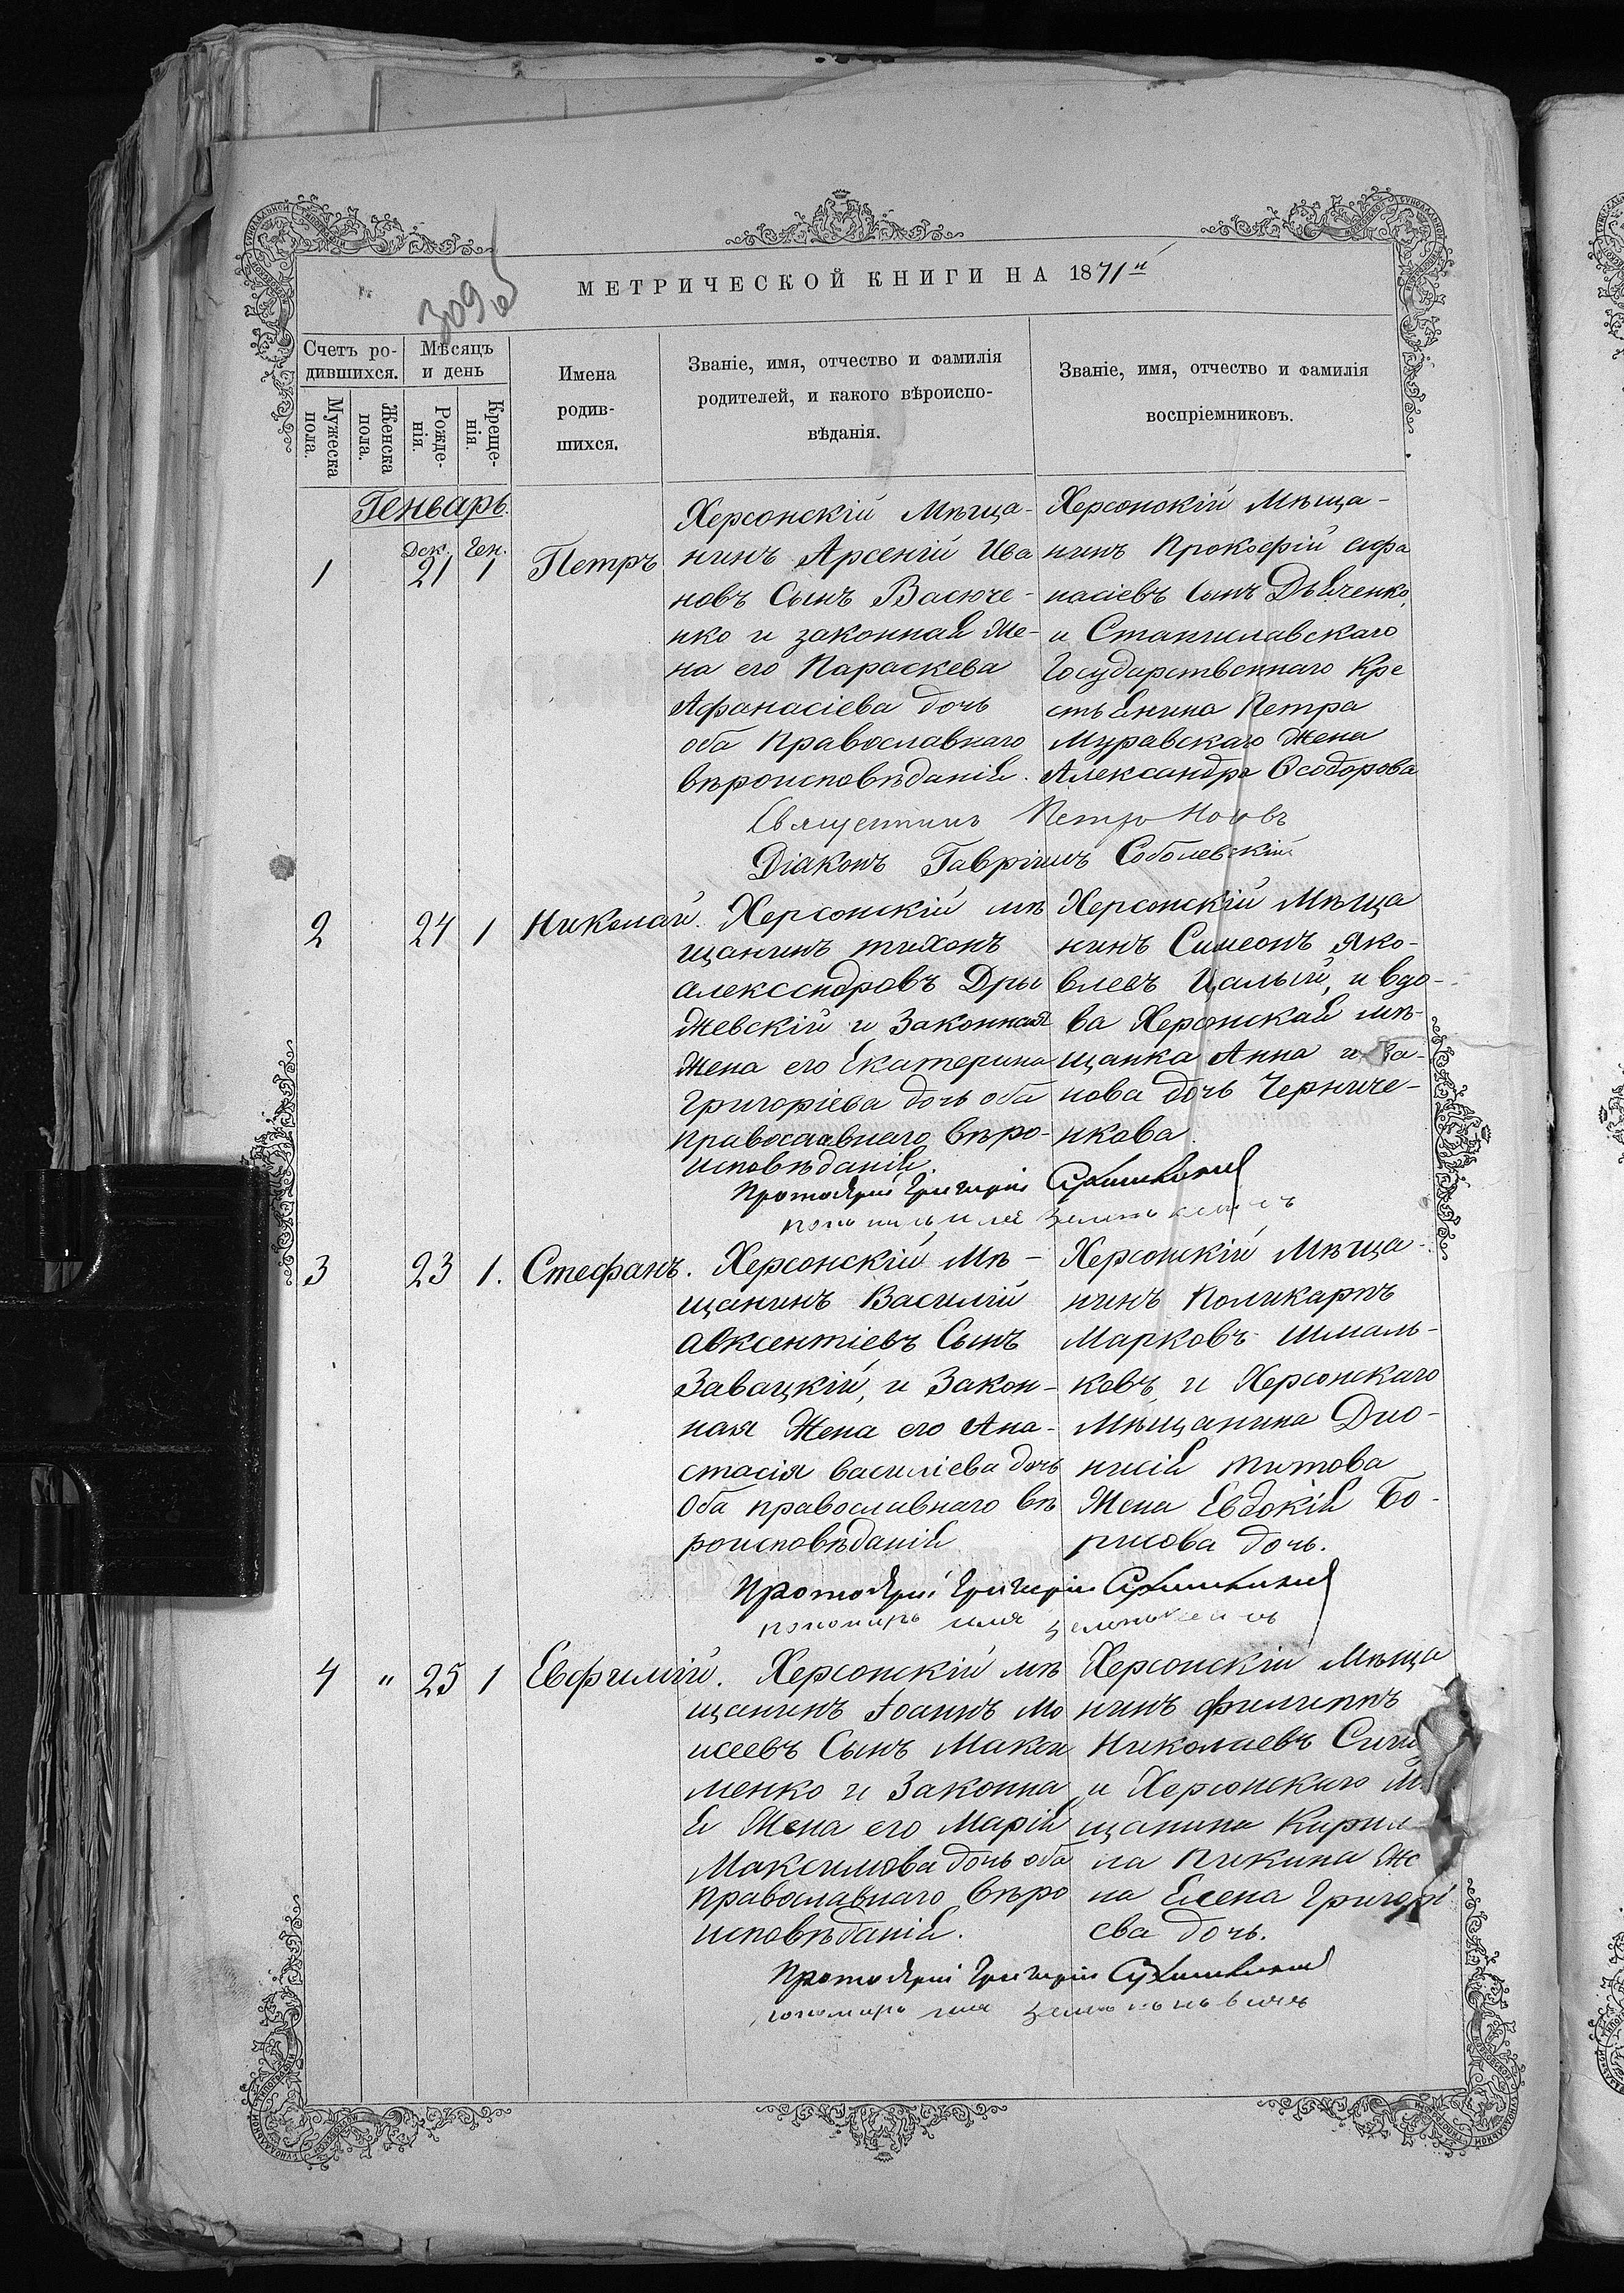 309 об
МЕТРИЧЕСКОЙ КНИГИ НА 1871й
Счетъ ро-
дившихся.
Мужеска
пола.
Женска
пола.
Мѣсяцъ
и день
Рожде-
нія.
Креще-
нія.
Имена
родив-
шихся.
Званіе, имя, отчество и фамилія
родителей, и какого вѣроиспо-
вѣданія.
Званіе, имя, отчество и фамилія
воспріемниковъ.
Генварь.
Дек. Ген.
1 21 1 Петръ
Херсонскій Мѣща-
нинъ Арсеній Ива
новъ Сынъ Васюче-
нко и законная Же-
на его Параскева
Афанасіева дочь
оба Православнаго
вѣроисповѣданія.
Херсонскій Мѣща-
нинъ Прокофій Афа
насіевъ сынъ Дьяченко,
и Станиславскаго
Государственнаго Кре
стьянина Петра
Муравскаго Жена
Александра Ѳеодорова
Священникъ Петръ
Діаконъ Гавріилъ Соболевскій
2 24 1 Николай.
Херсонскій мѣ
щанинъ тихонъ
александровъ Дры
жевскій и Законная
Жена его Екатерина
Григоріева дочь оба
православнаго вѣро-
исповѣданія.
Херсонскій Мѣща
нинъ Симеонъ Яко-
влевъ Цалый, и вдо-
ва Херсонская мѣ-
щанка Анна ива-
нова дочь Черниче-
нкова.
Протоіерей Григорій
3 23 1. Стефанъ.
Херсонскій Мѣ-
щанинъ Василій
авксентіевъ Сынъ
Завацкій, и Закон-
ная Жена его Ана-
стасія василіева дочь
Оба православнаго вѣ
роисповѣданія
Херсонскій Мѣща-
нинъ Поликарпъ
Марковъ Шмаль-
ковъ, и Херсонскаго
Мѣщанина Дио-
нисія титова
Жена Евдокія Бо-
рисова дочь.
Протоіерей Григорій
пономарь илія
4 " 25 1 Евфимій.
Херсонскій мѣ
щанинъ Іоаннъ Мо
исеевъ Сынъ Макси
менко и Законна
я Жена его Марія
Максимова дочь оба
православнаго вѣро
исповѣданія.
Херсонскій Мѣща
нинъ филиппъ
Николаевъ
и Херсонскаго Мѣ
щанина Кирил
ла Пикина Же
на Елена Григорі
ева дочь.
Протоіерей Григорій
пономарь илія